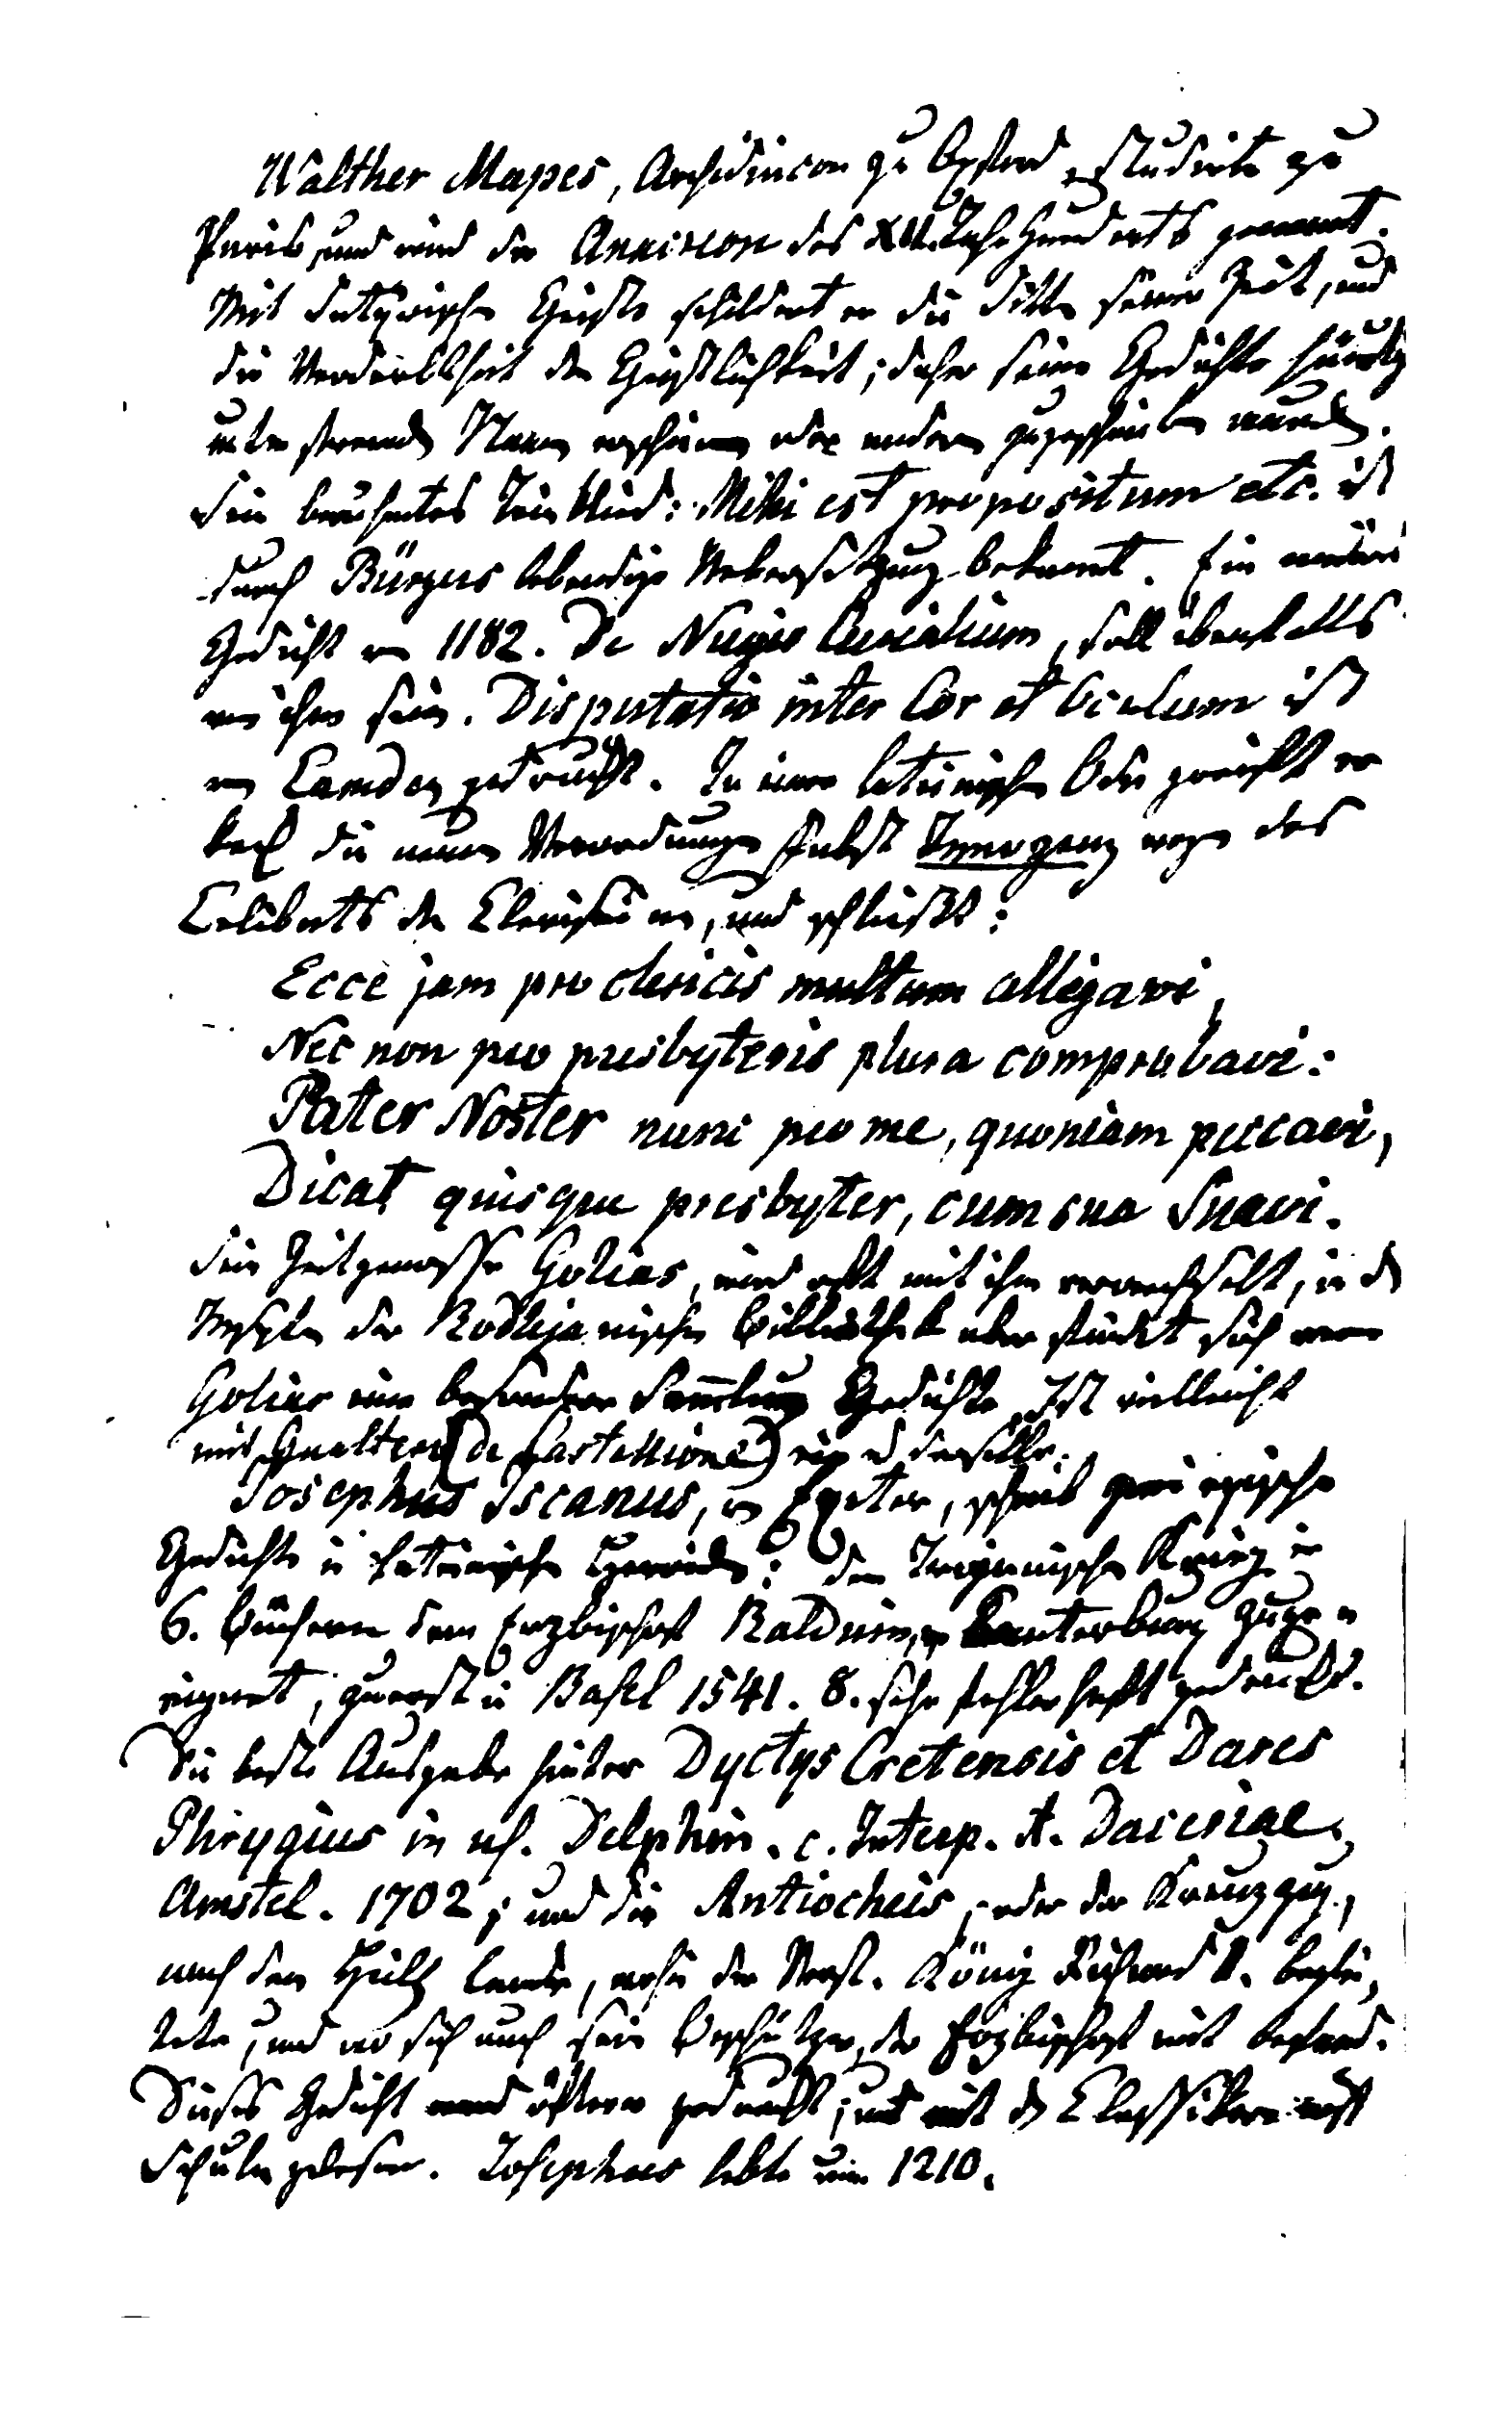 Walther Mapes, Archidiacon zu Oxford, studirte zu
Paris, und wird der Anacreon des XII. Jahrhunderts genannt.
Mit satyrischem Geiste schildert er die Sitten seiner Zeit, und
die Verderbtheit der Geistlichkeit; daher seine Gedichte häufig
unter fremden Namen erschienen oder andern zugeschrieben wurden.
Sein berühmtes Trinklied: Mihi est propositum etc. ist
durch Bürgers lebendige Uebersetzung bekannt. Ein anderes
Gedicht von 1182. De Nugis Curialium, soll ebenfalls
von ihm sein. Disputatio inter Cor et Oculum ist
von Camden gedruckt. In einer lateinischen Ode greift er
keck die neuen Verordnungen Pabst Innozenz wegen des
Celibats der Clerisei an, und schließt:
Ecce jam pro clericis multum allegavi,
Nec non pro presbyteris plura comprobavi:
Pater Noster nunc pro me, quoniam peccavi,
Dicat quisque presbyter, cum sua Suavi.
Sein Zeitgenosse Golias, wird oft mit ihm verwechselt, in den
Inschriften der Bodlejanischen Bibliothek aber findet sich von
Golias eine besondere Sammlung Gedichte. Ist vielleicht
mit Gualter (de Castellione) ein und derselbe.
Josephus Iscanus, von Exeter, schrieb zwei epische
Gedichte in lateinischen: den Trojanischen Krieg in
6. Büchern dem Erzbischof Balduin von Canterbury zuge-
eignet, zuerst in Basel 1541. 8. sehr fehlerhaft gedruckt.
Die beste Ausgabe hinter Dyctys Cretensis et Dares
Phrygius in us. Delphin. c. Interp. A. Daceriae,
Amstel. 1702; und die Antiocheis, oder der Kreuzzug,
nach dem Heilig Lande, wohin der Verf. König Richard I. beglei-
tete, und wo sich auch sein Beschützer, der Erzbischof mit befand.
Dieses Gedicht ward öfterer gedruckt, und mit den Classikern auf
Schulen gelesen. Josephus lebte um 1210.